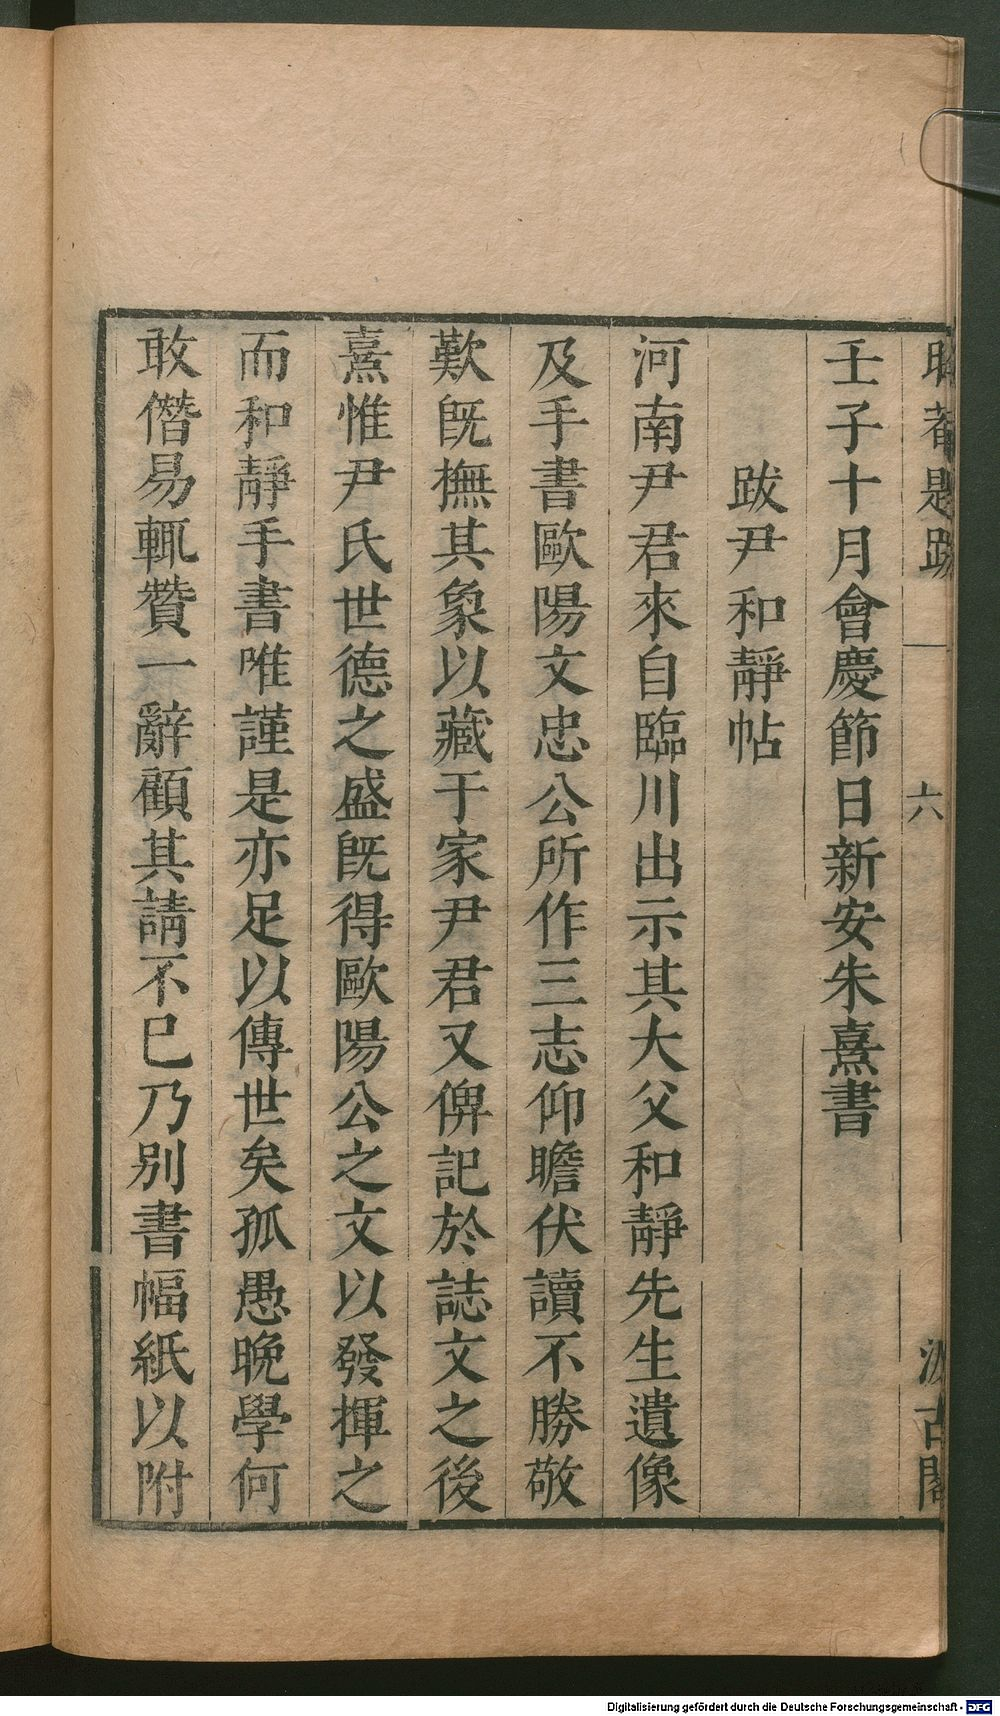 晦菴題跋 一 六 汲古閣
壬子十月會慶節日新安朱熹書
跋尹和靜帖
河南尹君來自臨川出示其大父和靜先生遺像
及手書歐陽文忠公所作三志仰瞻伏讀不勝敬
歎旣撫其象以藏于家尹君又俾記於誌文之後
熹惟尹氏世德之盛旣得歐陽公之文以發揮之
而和靜手書唯謹是亦足以傳世矣孤愚晚學何
敢僭易輒贊一辭顧其請不已乃別書幅紙以附
Digitalisierung gefördert durch die Deutsche Forschungsgemeinschaft - DFG